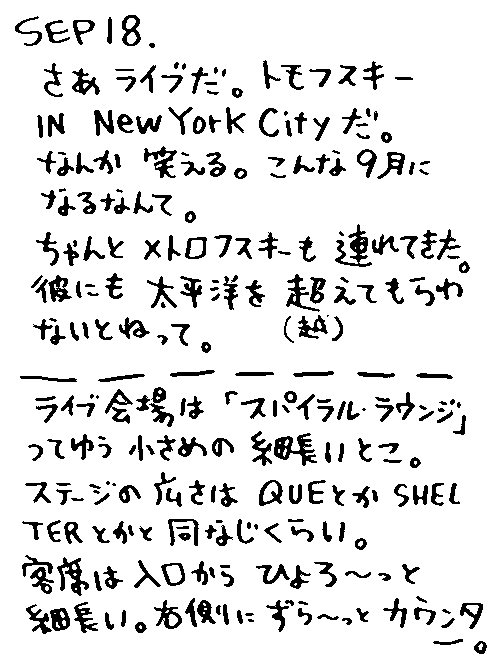 SEP 18.
さあ ライブだ。トモフスキー
IN New York City だ。
なんか 笑える。こんな 9月に
なるなんて。
ちゃんと メトロフスキーも 連れてきた。
彼にも 太平洋を 超えてもらわ
ないとねって。 (越)
ライブ会場は 「スパイラル・ラウンジ」
ってゆう 小さめの 細長いとこ。
ステージの 広さは QUEとか SHEL
TERとかと 同なじくらい。
客席は 入口から ひょろ〜っと
細長い。右側に ずら〜っと カウンタ
ー。